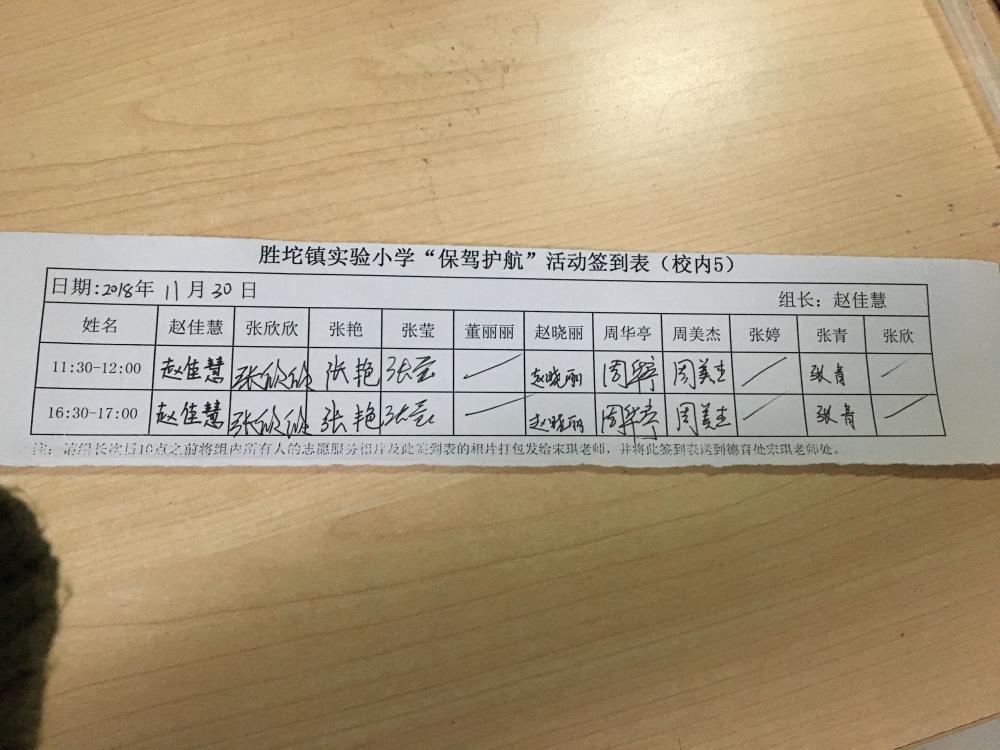 胜坨镇实验小学“保驾护航”活动签到表（校内5）
日期:2018年 11月30日 组长：赵佳慧
姓名 赵佳慧 张欣欣 张艳 张莹 董丽丽 赵晓丽 周华亭 周美杰 张婷 张青 张欣
11:30-12:00 赵佳慧 张欣欣 张艳 张莹 赵晓丽 周华亭 周美杰 张青
16:30-17:00 赵佳慧 张欣欣 张艳 张莹 赵晓丽 周华亭 周美杰 张青
注：请组长次日10点之前将组内所有人的志愿服务相片及此签到表的相片打包发给宋琪老师，并将此签到表送到德育处宋琪老师处。